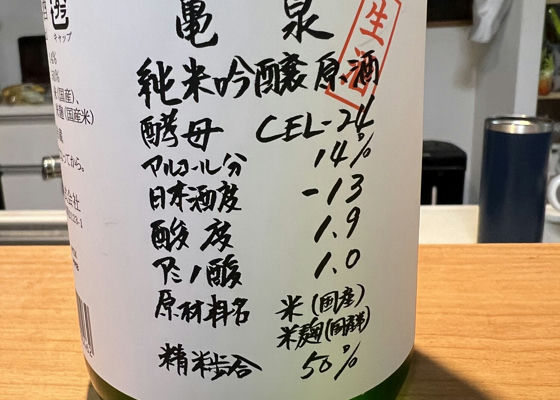 亀泉
生酒
純米吟醸原酒
酵母 CEL-24
アルコール分 14%
日本酒度 -13
酸度 1.9
アミノ酸 1.0
原材料名 米(国産)
米麹(国産米)
精米歩合 50%
キャップ
(国産)、
(国産米)